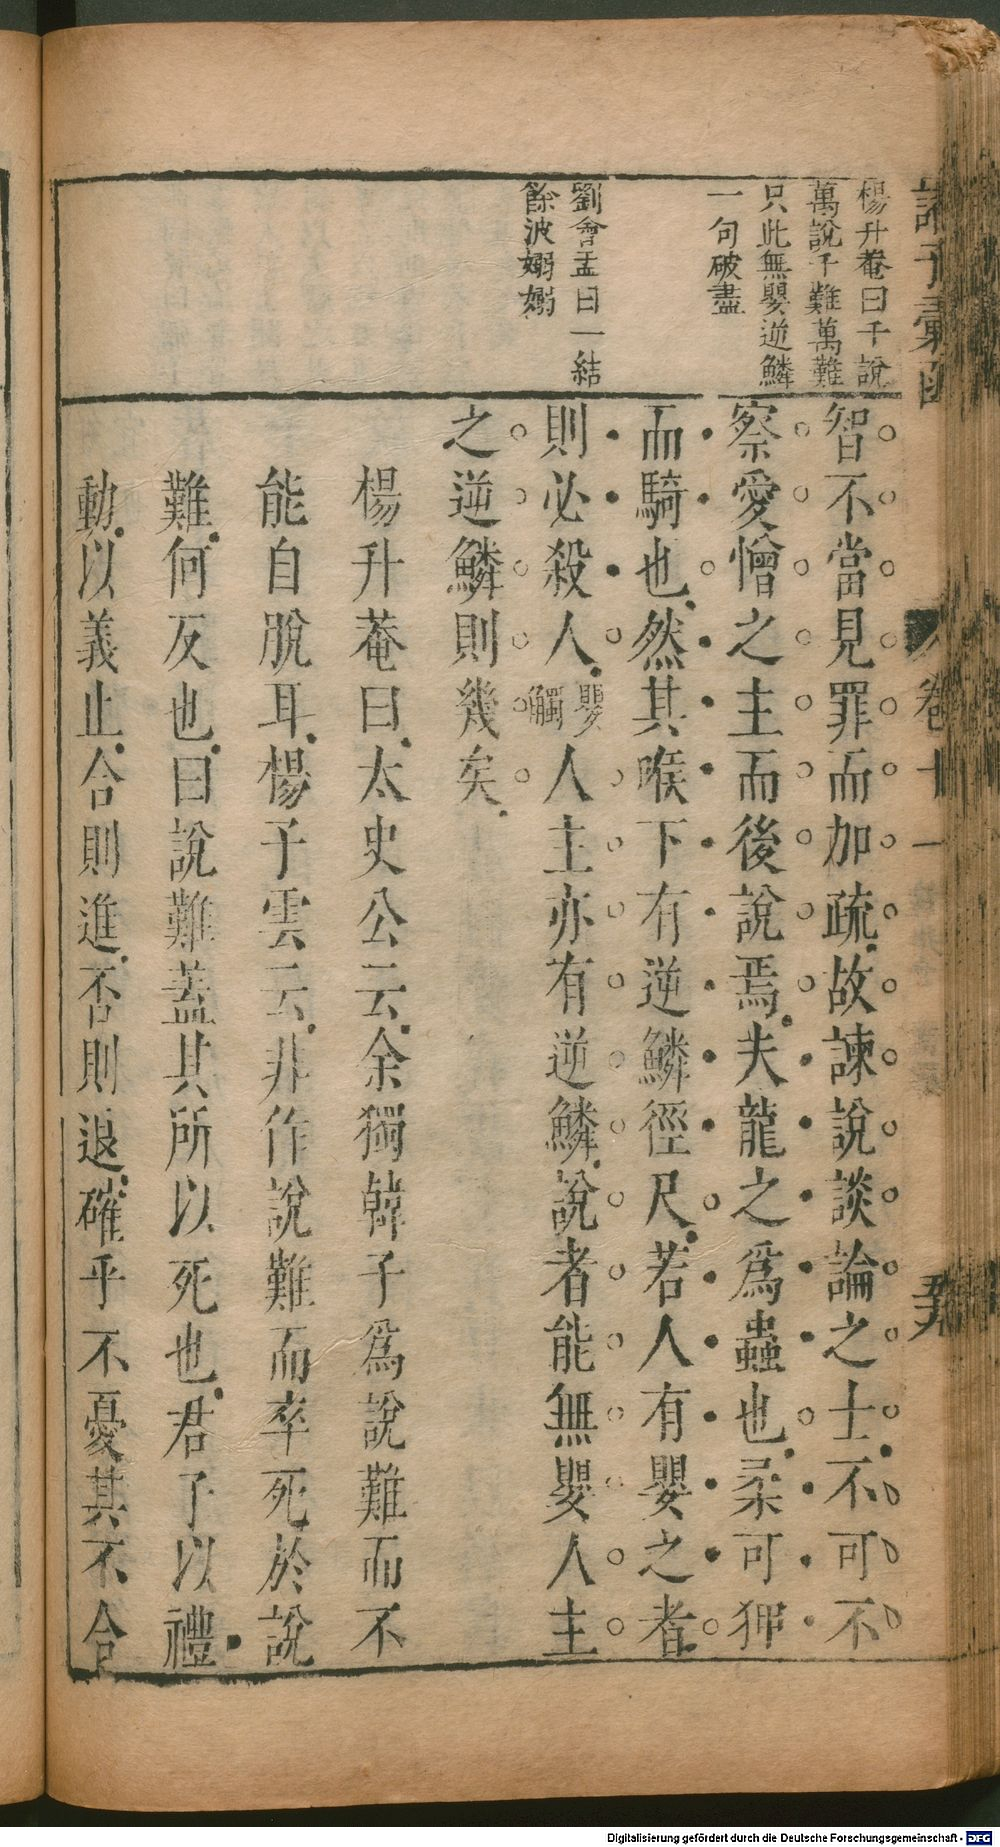 諸子彙函
卷十一
楊升菴曰千說
萬說千難萬難
只此無嬰逆鱗
一句破盡
劉會孟曰一結
餘波嫋嫋
智不當見罪而加疏故諫說談論之士不可不
察愛憎之主而後說焉夫龍之爲蟲也柔可狎
而騎也然其喉下有逆鱗徑尺若人有嬰之者
則必殺人嬰觸人主亦有逆鱗說者能無嬰人主
之逆鱗則幾矣
楊升菴曰太史公云余獨韓子爲說難而不
能自脫耳楊子雲云非作說難而卒死於說
難何反也曰說難蓋其所以死也君子以禮
動以義止合則進否則退確乎不憂其不合
Digitalisierung gefördert durch die Deutsche Forschungsgemeinschaft - DFG